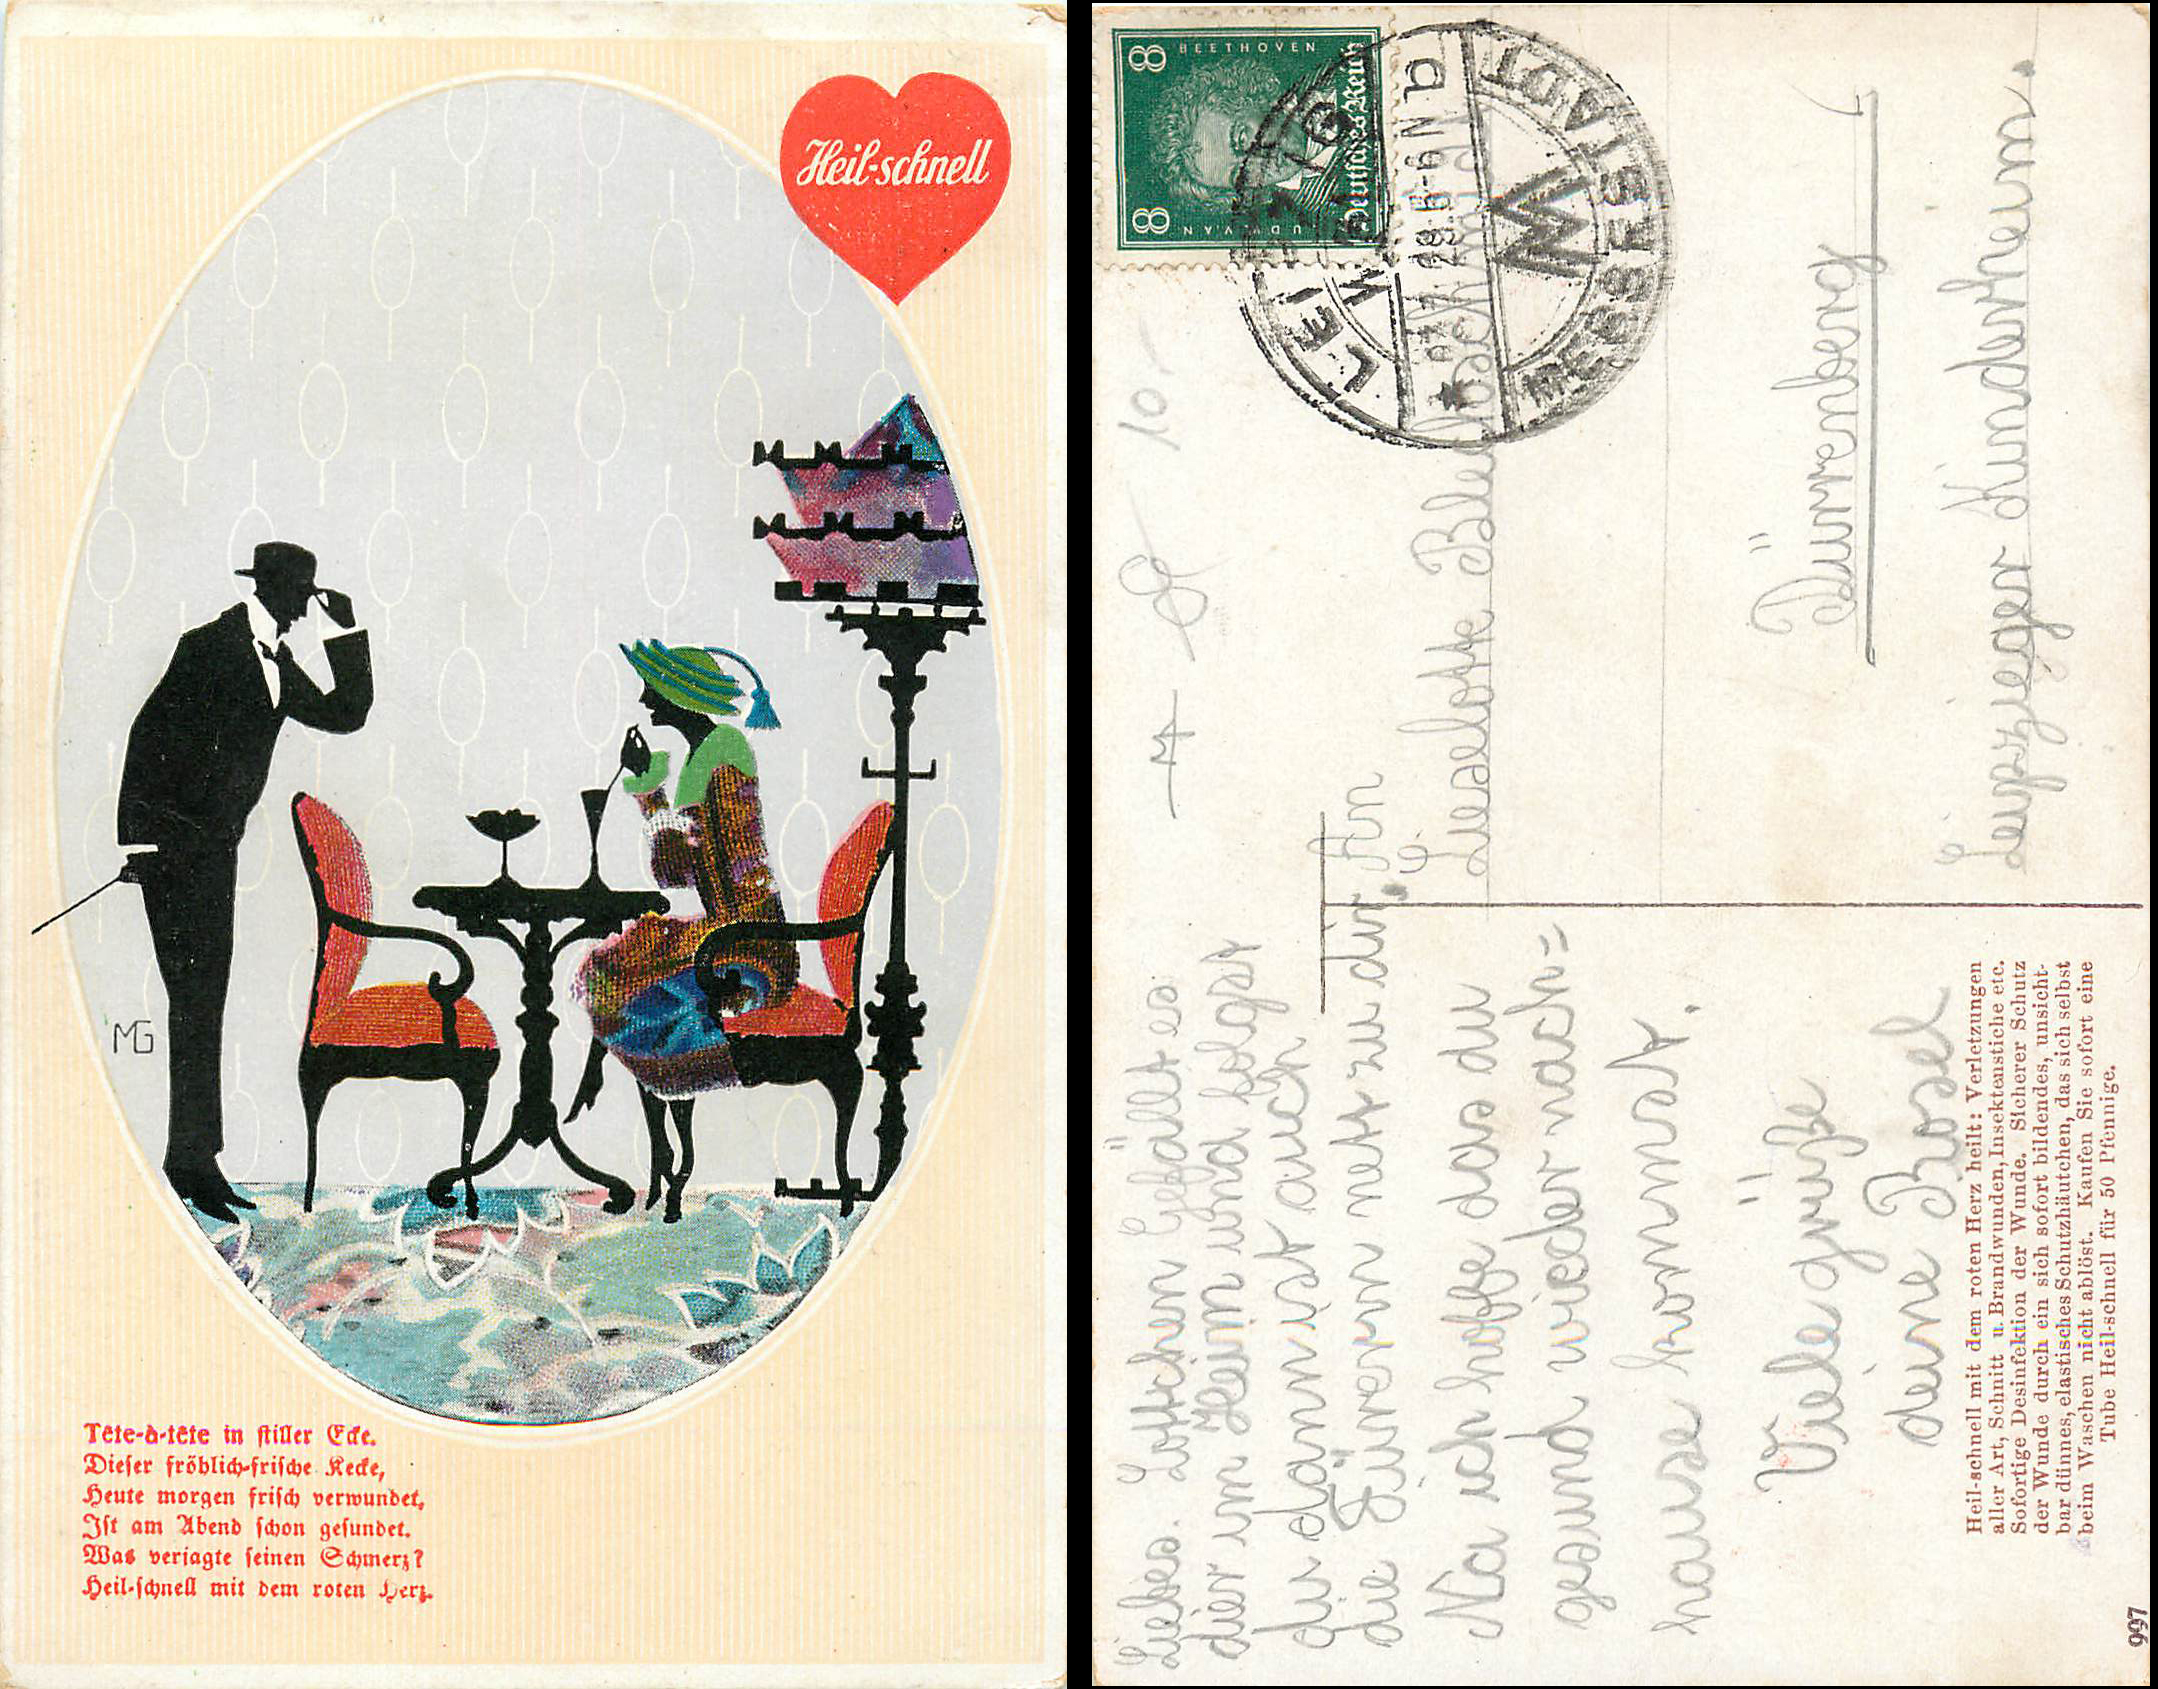 Heil-schnell
MG
Tête-à-tête in stiller Ecke.
Dieser fröhlich-frische Kecke,
Heute morgen frisch verwundet,
Ist am Abend schon gesundet.
Was verjagte seinen Schmerz?
Heil-schnell mit dem roten Herz.
Liebes. Lottchen Gefällt es
dier im Heim und folgst
du dann ist auch
die Füvern net zu dir.
Na ich hoffe das du
gesund wieder nach=
hause kommst.
Viele grüße
deine Rosel
Heil-schnell mit dem roten Herz heilt: Verletzungen
aller Art, Schnitt u. Brandwunden, Insektenstiche etc.
Sofortige Desinfektion der Wunde. Sicherer Schutz
der Wunde durch ein sich sofort bildendes, unsicht-
bar dünnes, elastisches Schutzhäutchen, das sich selbst
beim Waschen nicht ablöst. Kaufen Sie sofort eine
Tube Heil-schnell für 50 Pfennige.
997
8 BEETHOVEN
8 LUDW. VAN
Deutsches Reich
LEIPZIG
W
28.5.
N
a
W
MESSESTADT
10
An
Lieselotte
Dürrenberg
Leipzieger Kinderheim.